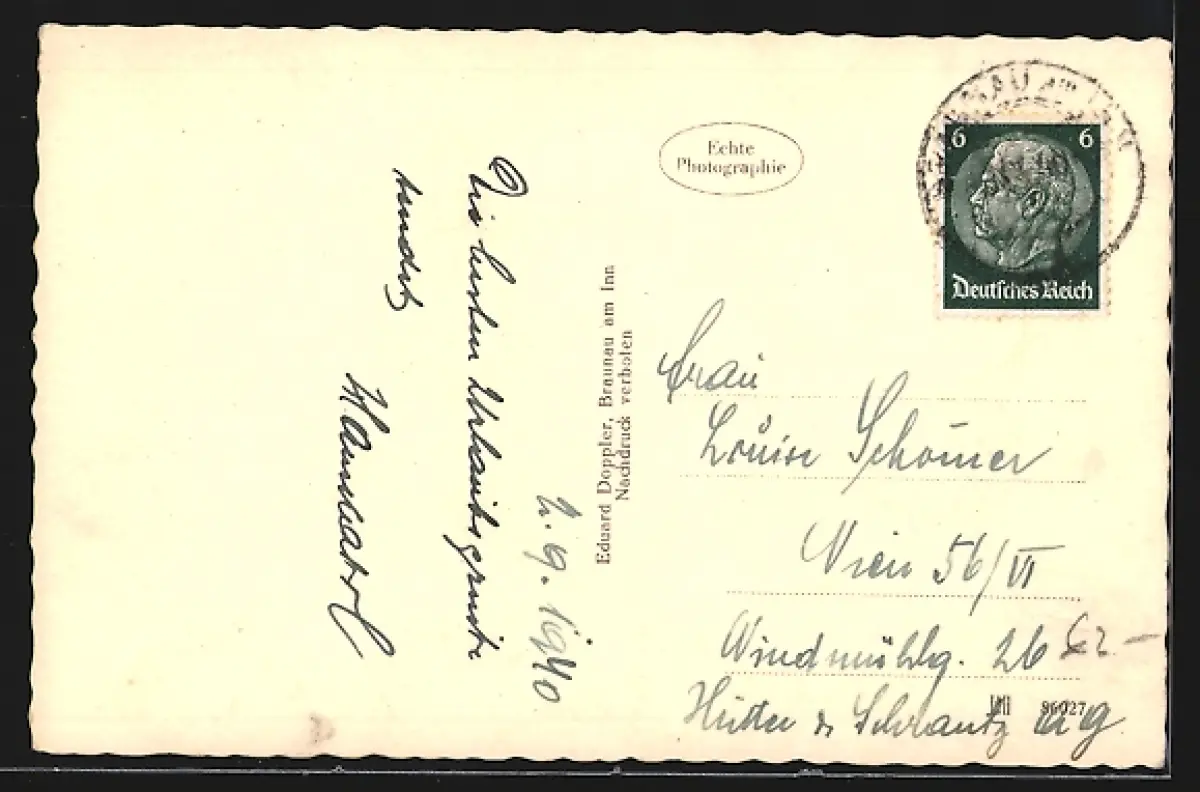 2. 9. 1940
Die besten Urlaubsgrüße
sendet
Echte
Photographie
Eduard Doppler, Braunau am Inn
Nachdruck verboten
6 6
Deutsches Reich
Frau
Louise Schömer
Wien 56/VI
Windmühlg. 26
Hutter & Schrantz AG
86027